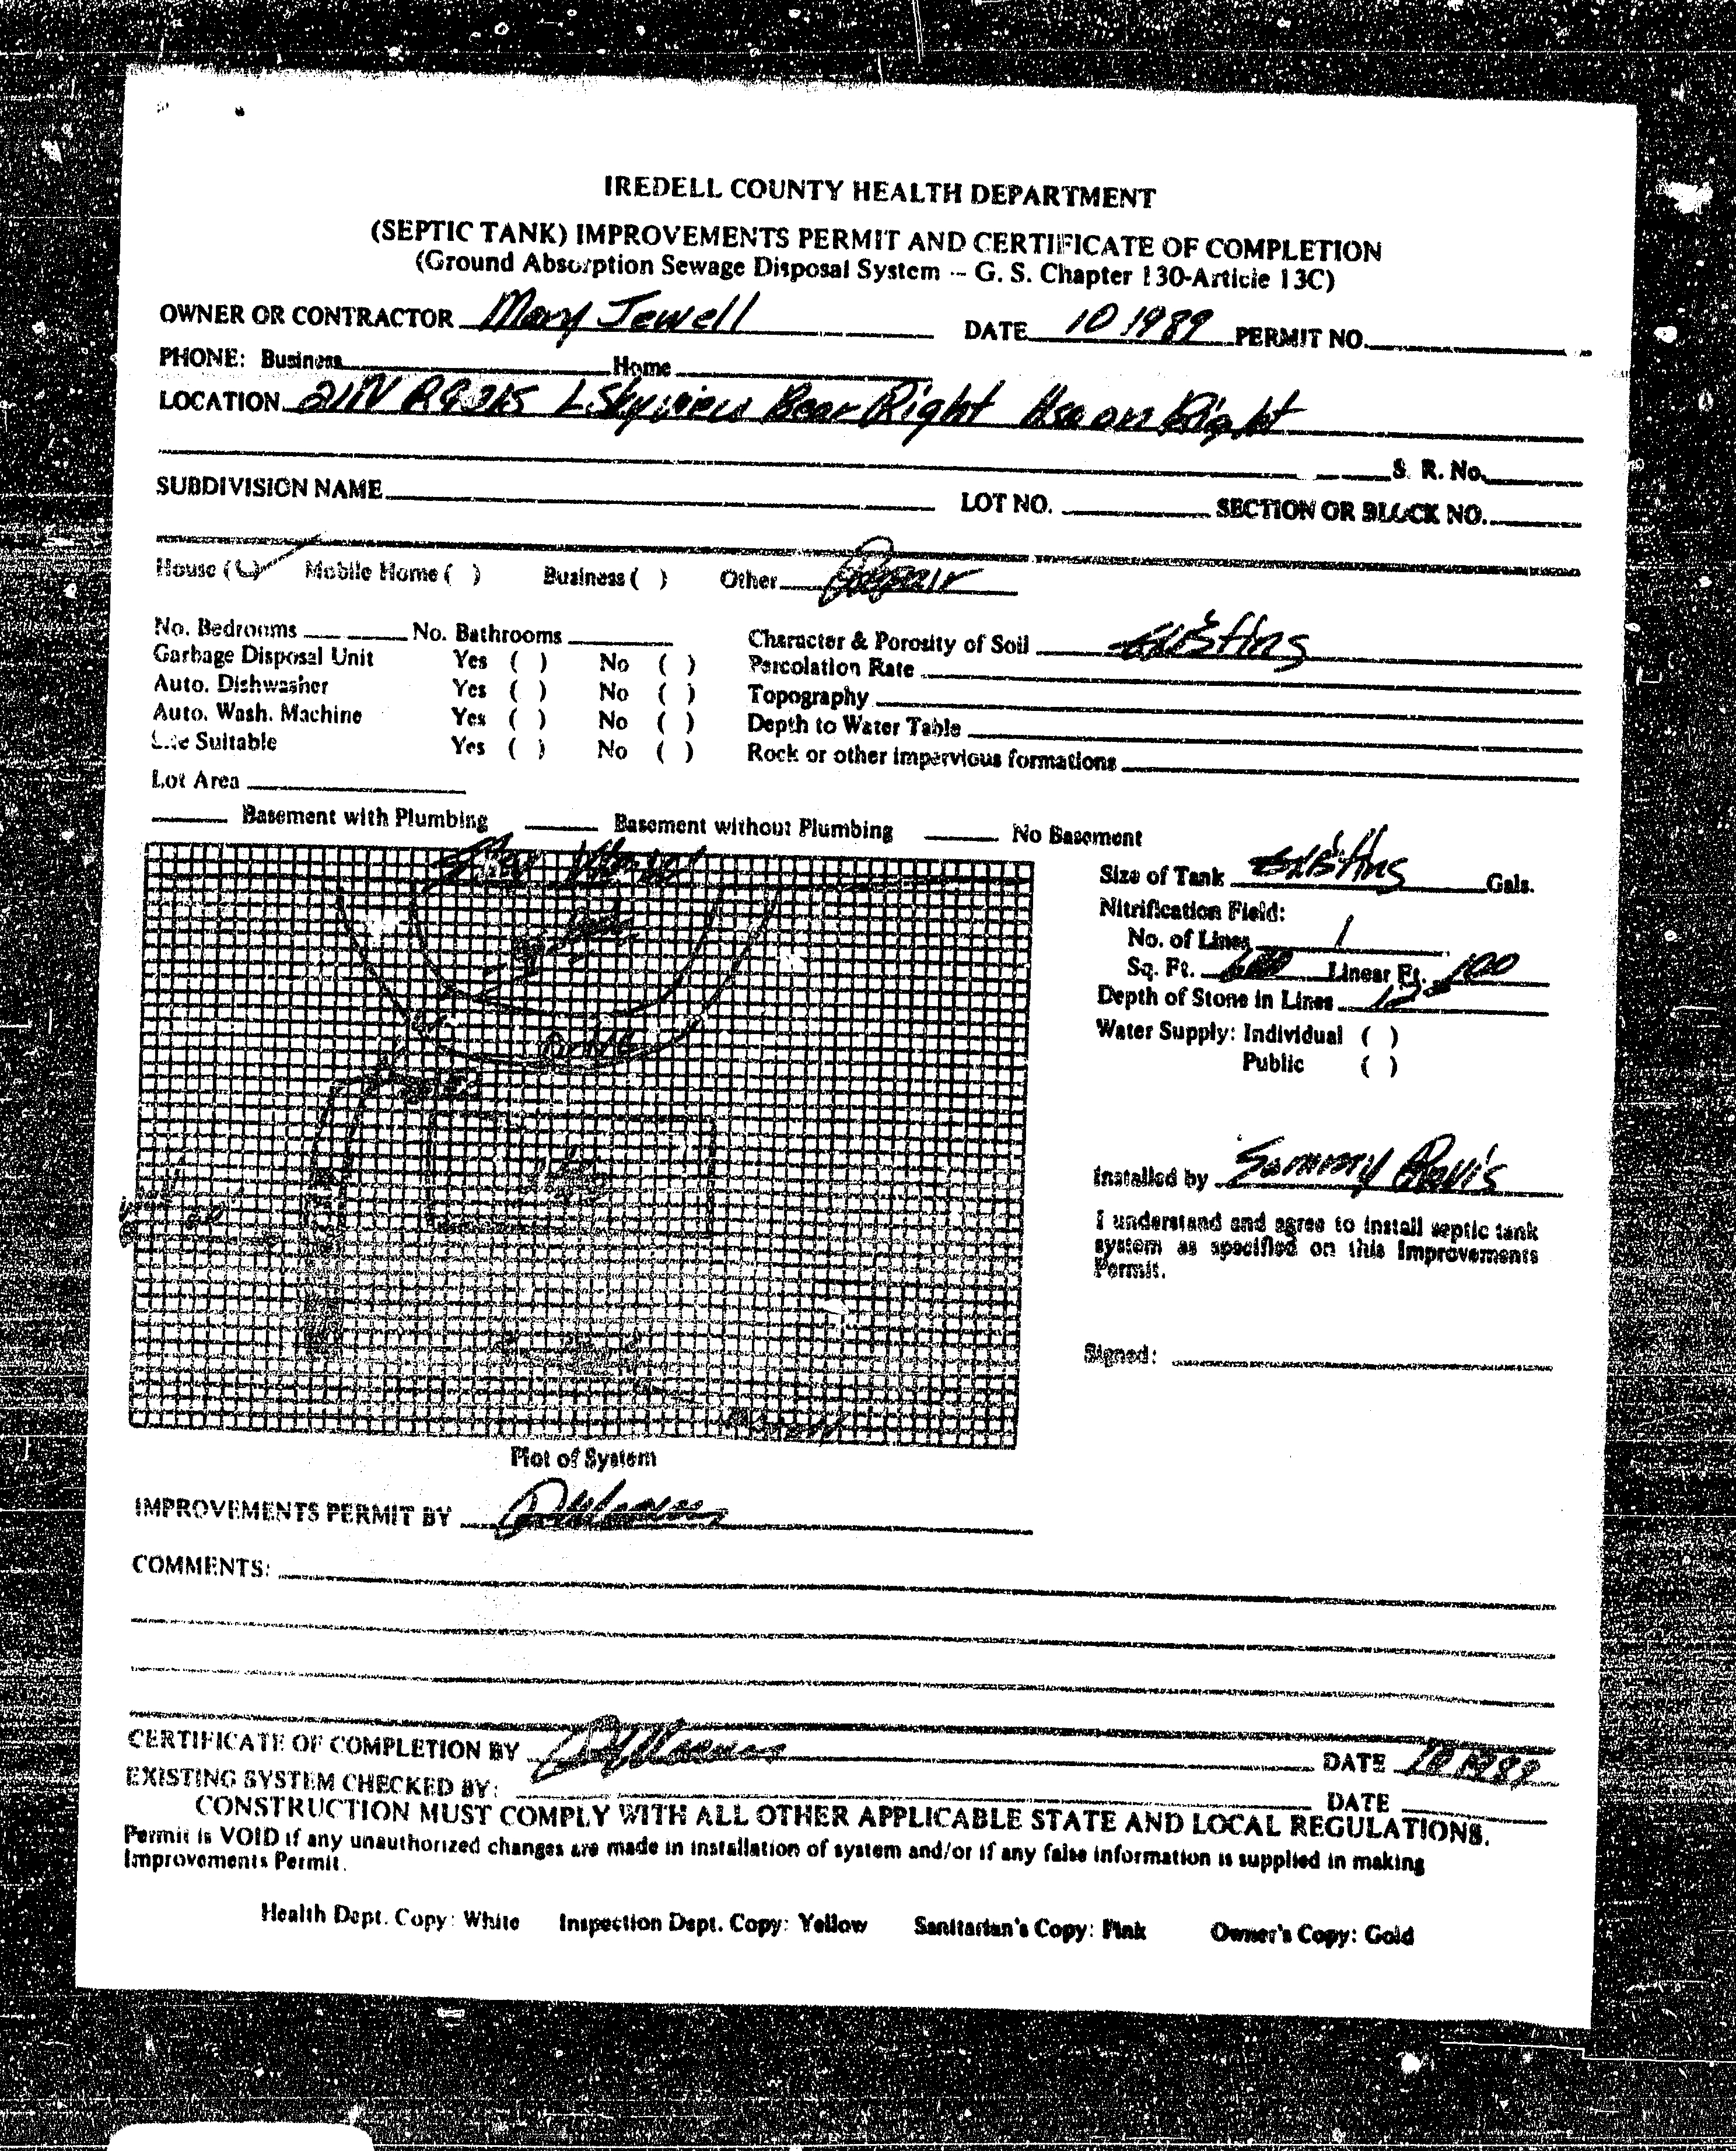 IREDELL COUNTY HEALTH DEPARTMENT
(SEPTIC TANK) IMPROVEMENTS PERMIT AND CERTIFICATE OF COMPLETION
(Ground Absorption Sewage Disposal System -- G. S. Chapter 130-Article 13C)
OWNER OR CONTRACTOR Mary Jewell DATE 10 1989 PERMIT NO.
PHONE: Business Home
LOCATION 21N L Skyview Bear Right Hse on Right
S. R. No.
SUBDIVISION NAME LOT NO. SECTION OR BLOCK NO.
House ( ) Mobile Home ( ) Business ( ) Other Repair
No. Bedrooms No. Bathrooms Character & Porosity of Soil Existing
Garbage Disposal Unit Yes ( ) No ( ) Percolation Rate
Auto. Dishwasher Yes ( ) No ( ) Topography
Auto. Wash. Machine Yes ( ) No ( ) Depth to Water Table
Site Suitable Yes ( ) No ( ) Rock or other impervious formations
Lot Area
Basement with Plumbing Basement without Plumbing No Basement
Size of Tank Existing Gals.
Nitrification Field:
No. of Lines 1
Sq. Ft. Linear Ft. 100
Depth of Stone in Lines 12
Water Supply: Individual ( )
Public ( )
Drive
Installed by Sammy Davis
I understand and agree to install septic tank
system as specified on this Improvements
Permit.
Signed:
Plot of System
IMPROVEMENTS PERMIT BY
COMMENTS:
CERTIFICATE OF COMPLETION BY DATE 10 1989
EXISTING SYSTEM CHECKED BY: DATE
CONSTRUCTION MUST COMPLY WITH ALL OTHER APPLICABLE STATE AND LOCAL REGULATIONS.
Permit is VOID if any unauthorized changes are made in installation of system and/or if any false information is supplied in making
Improvements Permit.
Health Dept. Copy: White Inspection Dept. Copy: Yellow Sanitarian's Copy: Pink Owner's Copy: Gold